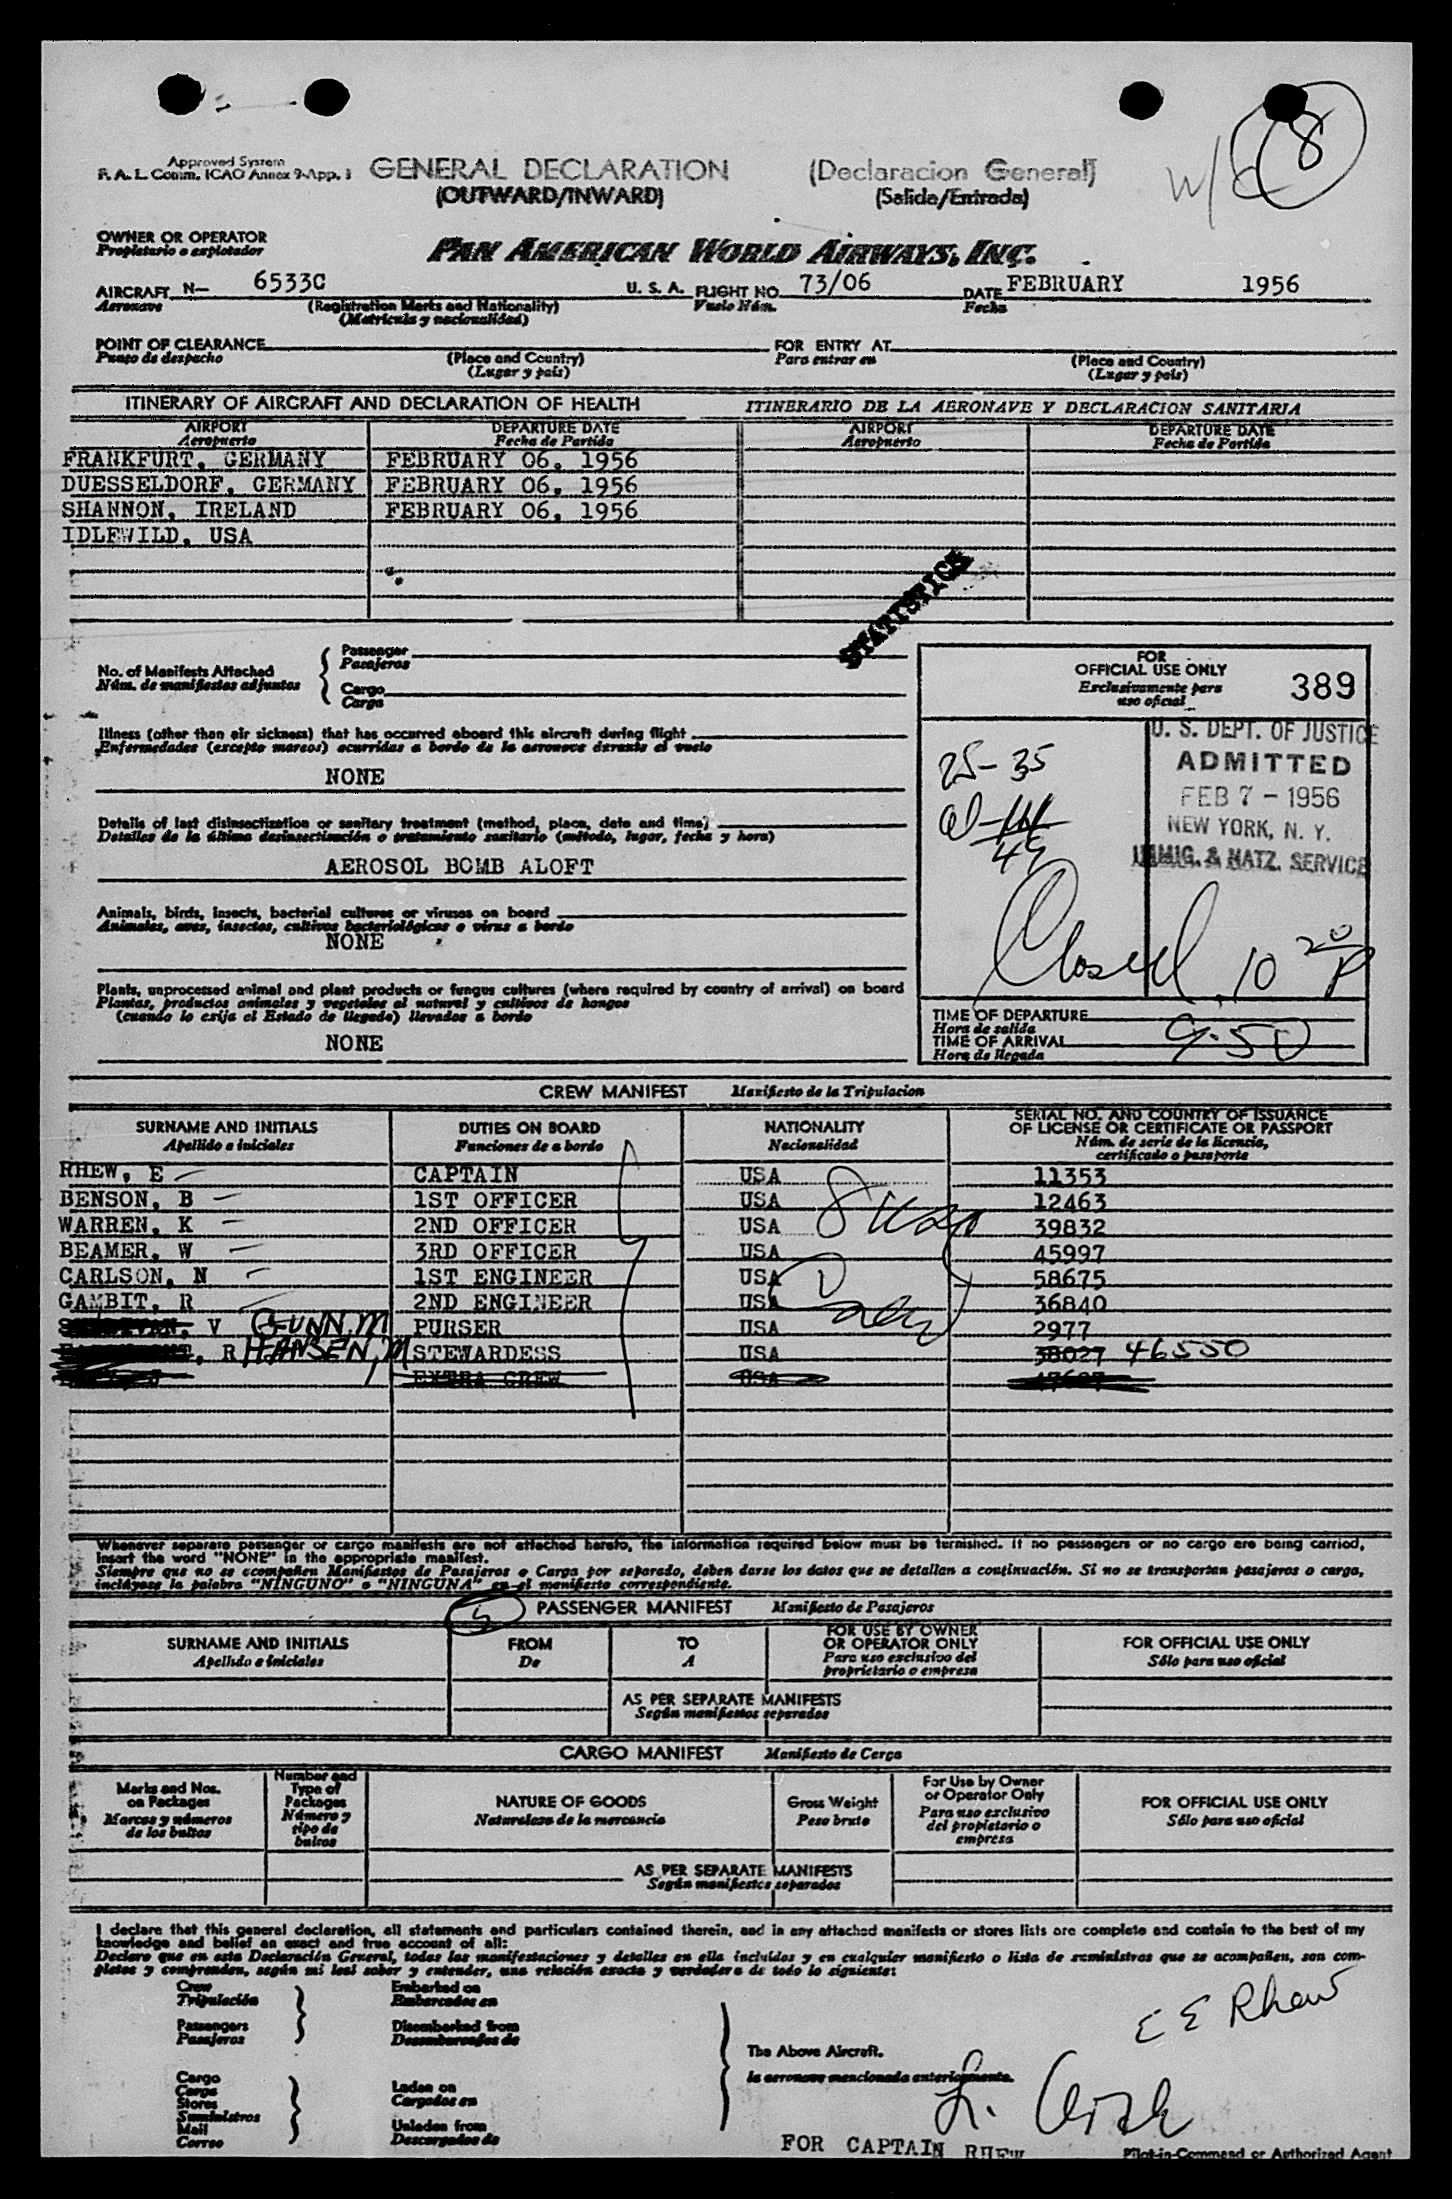 8
W/C
Approved System
F. A. L. Comm. ICAO Annex 9-App. 1
GENERAL DECLARATION (Declaracion General)
(OUTWARD/INWARD) (Salida/Entrada)
OWNER OR OPERATOR
Propietario o explotador
PAN AMERICAN WORLD AIRWAYS, INC.
AIRCRAFT N— 6533C U. S. A. FLIGHT NO. 73/06 DATE FEBRUARY 1956
Aeronave (Registration Marks and Nationality) Vuelo Núm. Fecha
(Matricula y nacionalidad)
POINT OF CLEARANCE FOR ENTRY AT
Punto de despacho (Place and Country) Para entrar en (Place and Country)
(Lugar y país) (Lugar y país)
ITINERARY OF AIRCRAFT AND DECLARATION OF HEALTH ITINERARIO DE LA AERONAVE Y DECLARACION SANITARIA
AIRPORT DEPARTURE DATE AIRPORT DEPARTURE DATE
Aeropuerto Fecha de Partida Aeropuerto Fecha de Partida
FRANKFURT, GERMANY FEBRUARY 06, 1956
DUESSELDORF, GERMANY FEBRUARY 06, 1956
SHANNON, IRELAND FEBRUARY 06, 1956
IDLEWILD, USA
STATISTICS
No. of Manifests Attached
Núm. de manifiestos adjuntos
Passenger
Pasajeros
Cargo
Carga
FOR
OFFICIAL USE ONLY
Exclusivamente para
uso oficial
389
Illness (other than air sickness) that has occurred aboard this aircraft during flight
Enfermedades (excepto mareos) ocurridas a bordo de la aeronave durante el vuelo
NONE
U. S. DEPT. OF JUSTICE
ADMITTED
FEB 7 - 1956
NEW YORK, N. Y.
IMMIG. & NATZ. SERVICE
25-35
Details of last disinsectization or sanitary treatment (method, place, date and time)
Detalles de la última desinsectización o tratamiento sanitario (método, lugar, fecha y hora)
AEROSOL BOMB ALOFT
Animals, birds, insects, bacterial cultures or viruses on board
Animales, aves, insectos, cultivos bacteriológicos o virus a bordo
NONE
Closed 10 20 P
Plants, unprocessed animal and plant products or fungus cultures (where required by country of arrival) on board
Plantas, productos animales y vegetales al natural y cultivos de hongos
(cuando lo exija el Estado de llegada) llevados a bordo
NONE
TIME OF DEPARTURE
Hora de salida
TIME OF ARRIVAL 9:50
Hora de llegada
CREW MANIFEST Manifiesto de la Tripulacion
SURNAME AND INITIALS DUTIES ON BOARD NATIONALITY SERIAL NO. AND COUNTRY OF ISSUANCE
OF LICENSE OR CERTIFICATE OR PASSPORT
Apellido e iniciales Funciones de a bordo Nacionalidad Núm. de serie de la licencia,
certificado o pasaporte
RHEW, E CAPTAIN USA 11353
BENSON, B 1ST OFFICER USA 12463
WARREN, K 2ND OFFICER USA 39832
BEAMER, W 3RD OFFICER USA 45997
CARLSON, N 1ST ENGINEER USA 58675
GAMBIT, R 2ND ENGINEER USA 36840
V GUNN, M PURSER USA 2977
, R HANSEN, M STEWARDESS USA 38027 46550
EXTRA CREW USA
Whenever separate passenger or cargo manifests are not attached hereto, the information required below must be furnished. If no passengers or no cargo are being carried,
insert the word "NONE" in the appropriate manifest.
Siempre que no se acompañen Manifiestos de Pasajeros o Carga por separado, deben darse los datos que se detallan a continuación. Si no se transportan pasajeros o carga,
inclúyase la palabra "NINGUNO" o "NINGUNA" en el manifiesto correspondiente.
5 PASSENGER MANIFEST Manifiesto de Pasajeros
SURNAME AND INITIALS FROM TO FOR USE BY OWNER
OR OPERATOR ONLY FOR OFFICIAL USE ONLY
Apellido e iniciales De A Para uso exclusivo del
propietario o empresa Sólo para uso oficial
AS PER SEPARATE MANIFESTS
Según manifiestos separados
CARGO MANIFEST Manifiesto de Carga
Marks and Nos.
on Packages
Marcas y números
de los bultos
Number and
Type of
Packages
Número y
tipo de
bultos
NATURE OF GOODS
Naturaleza de la mercancia
Gross Weight
Peso bruto
For Use by Owner
or Operator Only
Para uso exclusivo
del propietario o
empresa
FOR OFFICIAL USE ONLY
Sólo para uso oficial
AS PER SEPARATE MANIFESTS
Según manifiestos separados
I declare that this general declaration, all statements and particulars contained therein, and in any attached manifests or stores lists are complete and contain to the best of my
knowledge and belief an exact and true account of all:
Declaro que en esta Declaración General, todas las manifestaciones y detalles en ella incluídos y en cualquier manifiesto o lista de suministros que se acompañen, son com-
pletos y comprenden, según mi leal saber y entender, una relación exacta y verdadera de todo lo siguiente:
Crew
Tripulación
Passengers
Pasajeros
Cargo
Carga
Stores
Suministros
Mail
Correo
Embarked on
Embarcados en
Disembarked from
Desembarcados de
Laden on
Cargados en
Unladen from
Descargados de
The Above Aircraft.
la aeronave mencionada anteriormente.
E E Rhew
FOR CAPTAIN RHEW
Pilot-in-Command or Authorized Agent